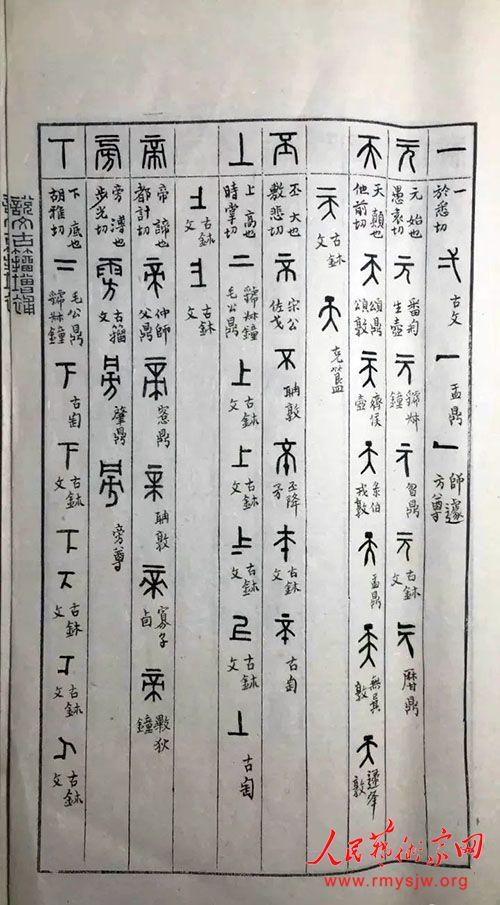 一 一 於悉切 弌 古文 一 盂鼎 一 師遽方尊
元 元始也 愚袁切 元 番匊生壺 元 虢叔鐘 元 曶鼎 元 古鉢文 元 曆鼎
天 天顛也 他前切 天 頌鼎頌敦 天 齊侯壺 天 彔伯戎敦 天 盂鼎 天 無㠱敦 天 敦
天 古鉢文 天 克簋
丕 丕大也 敷悲切 宗公佐戈 不 聃敦 丕降矛 古鉢文 古匋
上 上高也 時掌切 二 虢叔鐘毛公鼎 上 古鉢文 上 古鉢文 上 古鉢文 古鉢文 上 古匋
上 古鉢文 上 古鉢文
帝 帝諦也 都計切 帝 仲師父鼎 帝 愙鼎 帝 聃敦 帝 寡子卣 帝 斁狄鐘
旁 旁溥也 步光切 雱 古籀文 旁 肇鼎 旁 旁尊
丅 下底也 胡雅切 二 虢叔鐘毛公鼎 下 古匋 下 古鉢文 下 古鉢文 下 古鉢文 下 古鉢文 下 古鉢文
說文古籀增補
人民藝術家网
www.rmysjw.org